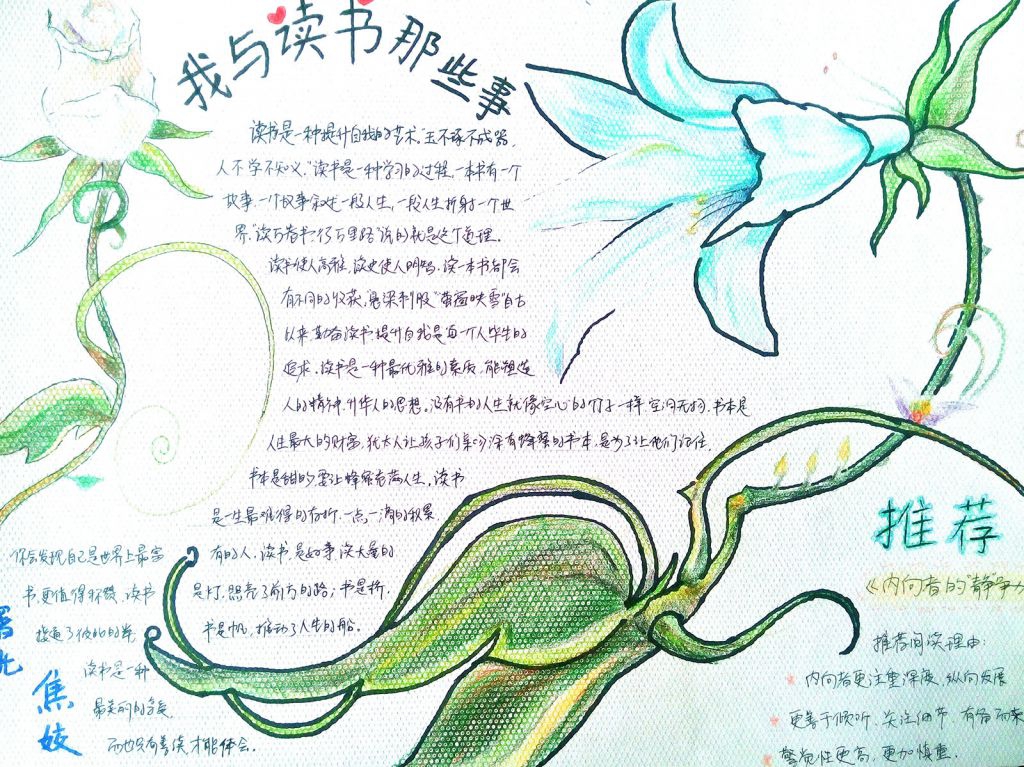 我与读书那些事
读书是一种提升自我的艺术。玉不琢不成器,
人不学不知义,"读书是一种学习的过程,一本书有一个
故事,一个故事叙述一段人生,一段人生折射一个世
界,"读万卷书行万里路"说的就是这个道理。
读书使人高雅,读史使人明智,读一本书都会
有不同的收获,"悬梁刺股""萤窗映雪"自古
以来,勤奋读书,提升自我是每一个人毕生的
追求,读书是一种最优雅的素质,能塑造
人的精神,升华人的思想,没有书的人生就像空心的竹子一样,空洞无物,书本是
人生最大的财富,犹太人让孩子们亲吻涂有蜂蜜的书本,是为了让他们记住,
书本是甜的,要让蜂蜜充满人生,读书
是一生最难得的存折,一点一滴的积累
你会发现自己是世界上最富
有的人,读书,是好事,读大量的
书,更值得祝赞,读书
是灯,照亮了前方的路;书是桥,
接通了彼此的岸,
书是帆,推动了人生的船。
读书是一种
最美丽的享受,
而也只有善读才能体会。
焦姣
推荐
《内向者的"静"争力
推荐阅读理由:
内向者更注重深度、纵向发展
更善于倾听、关注细节、有备而来
警觉性更高,更加慎重.